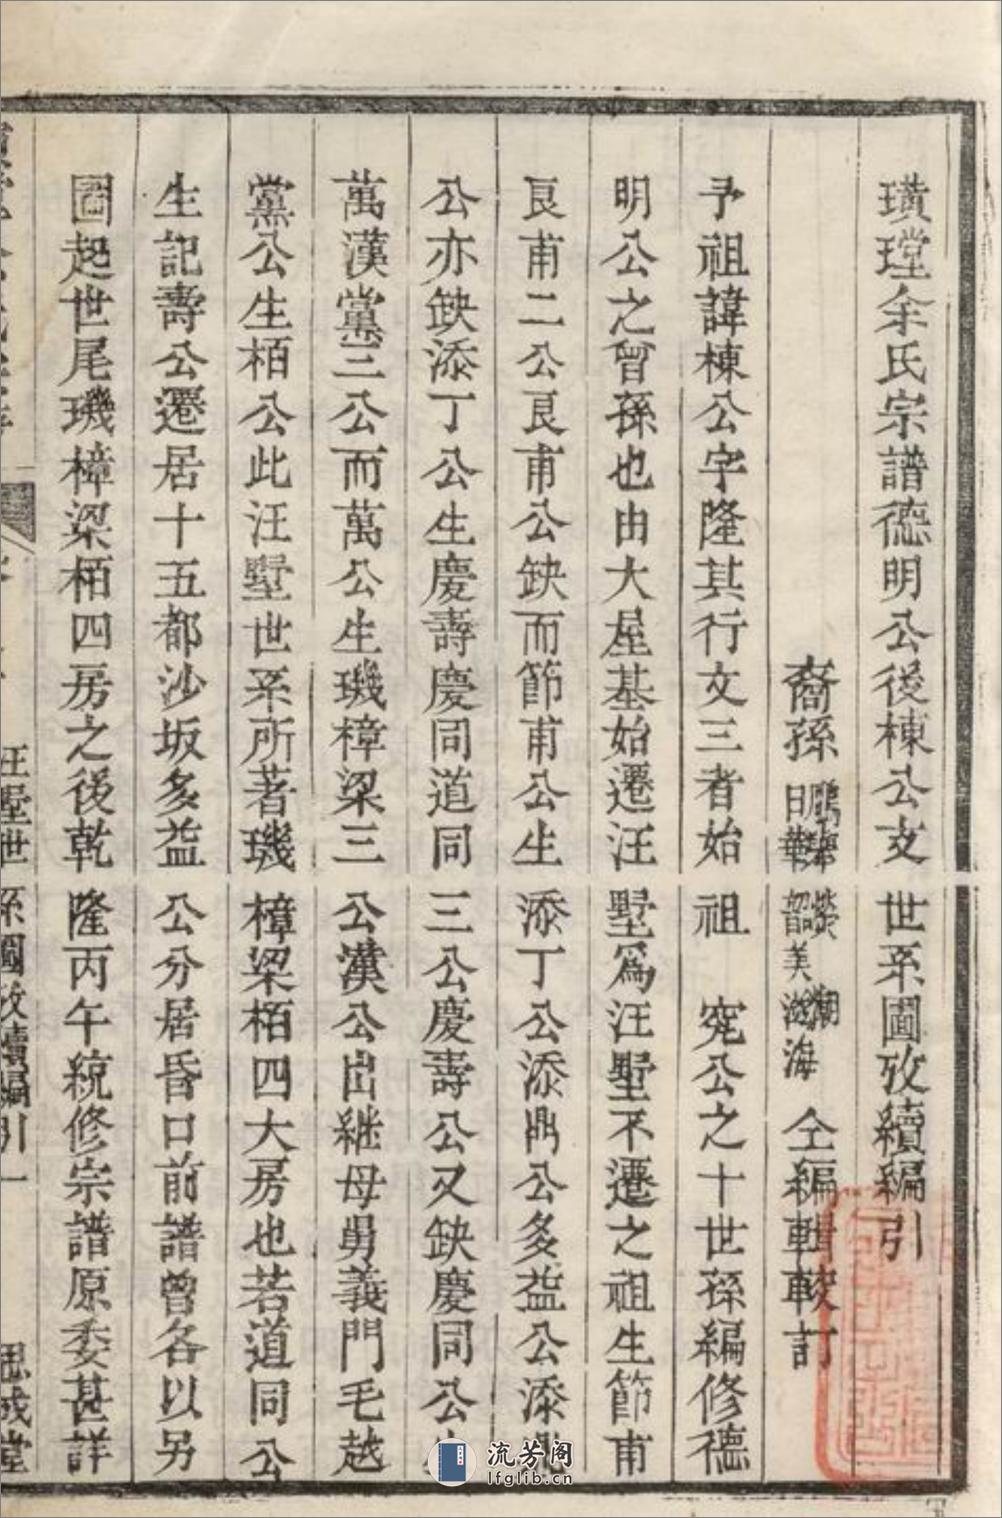 璜瑆余氏宗譜德明公後棟公支世系圖攷續編引
裔孫 日華 韶美 海 仝編輯較訂
予祖諱棟公字隆其行文三者始祖 寃公之十世孫編修德
明公之曾孫也由大屋基始遷汪墅爲汪墅不遷之祖生節甫
艮甫二公艮甫公缺而節甫公生添丁公添鼎公多益公添鼎
公亦缺添丁公生慶壽慶同道同三公慶壽公又缺慶同公生
萬漢黨三公而萬公生璣樟梁三公漢公出継母舅義門毛越
黨公生栢公此汪墅世系所著璣樟梁栢四大房也若道同公
生記壽公遷居十五都沙坂多益公分居昏口前譜曾各以另
圖起世尾璣樟梁栢四房之後乾隆丙午統修宗譜原委甚詳
汪墅世系圖攷續編引一
思成堂
流芳阁
lfglib.cn